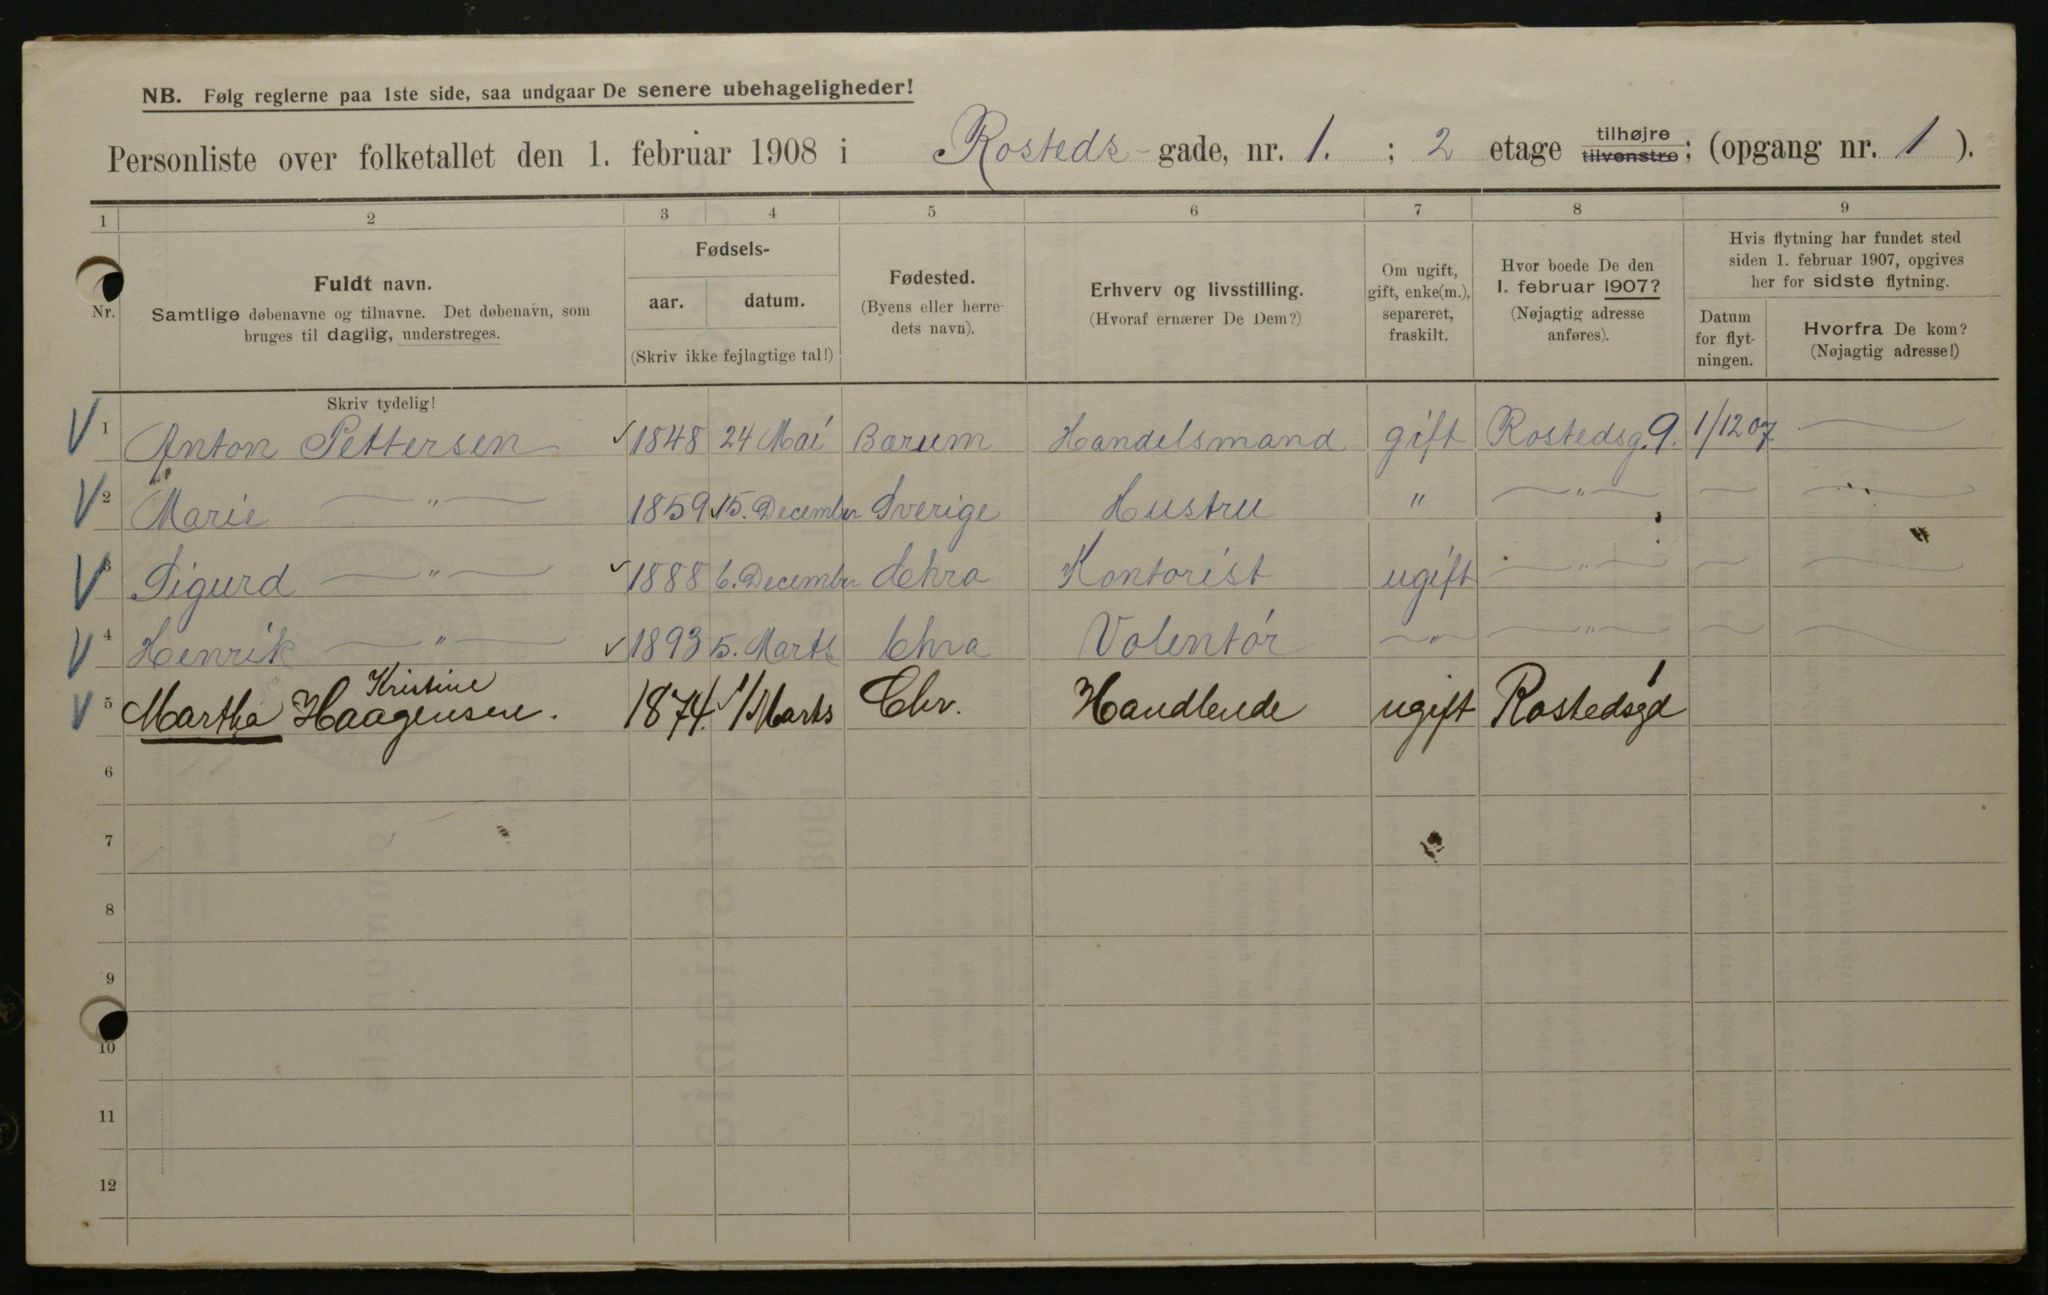 NB. Følg reglerne paa 1ste side, saa undgaar De senere ubehageligheder!
Personliste over folketallet den 1. februar 1908 i Rosteds-gade, nr. 1. ; 2 etage tilhøjre tilvenstre; (opgang nr. 1 ).
1 2 3 4 5 6 7 8 9
Nr.
Fuldt navn.
Samtlige døbenavne og tilnavne. Det døbenavn, som
bruges til daglig, understreges.
Fødsels-
aar. datum.
(Skriv ikke fejlagtige tal!)
Fødested.
(Byens eller herre-
dets navn).
Erhverv og livsstilling.
(Hvoraf ernærer De Dem?)
Om ugift,
gift, enke(m.),
separeret,
fraskilt.
Hvor boede De den
1. februar 1907?
(Nøjagtig adresse
anføres).
Hvis flytning har fundet sted
siden 1. februar 1907, opgives
her for sidste flytning.
Datum
for flyt-
ningen.
Hvorfra De kom?
(Nøjagtig adresse!)
Skriv tydelig!
1 Anton Pettersen 1848 24 Mai Barum Handelsmand gift Rostedsg. 9. 1/12 07 —
2 Marie —"— 1859 15. December Sverige Hustru " —"— — —
3 Sigurd —"— 1888 6. December Chra Kontorist ugift —"— — —
4 Henrik —"— 1893 5. Marts Chra Volentør —"— —"— — —
Kristine
5 Martha Haagensen. 1874. 1/Marts Chr. Handlende ugift Rostedsgd 1
6
7
8
9
10
11
12